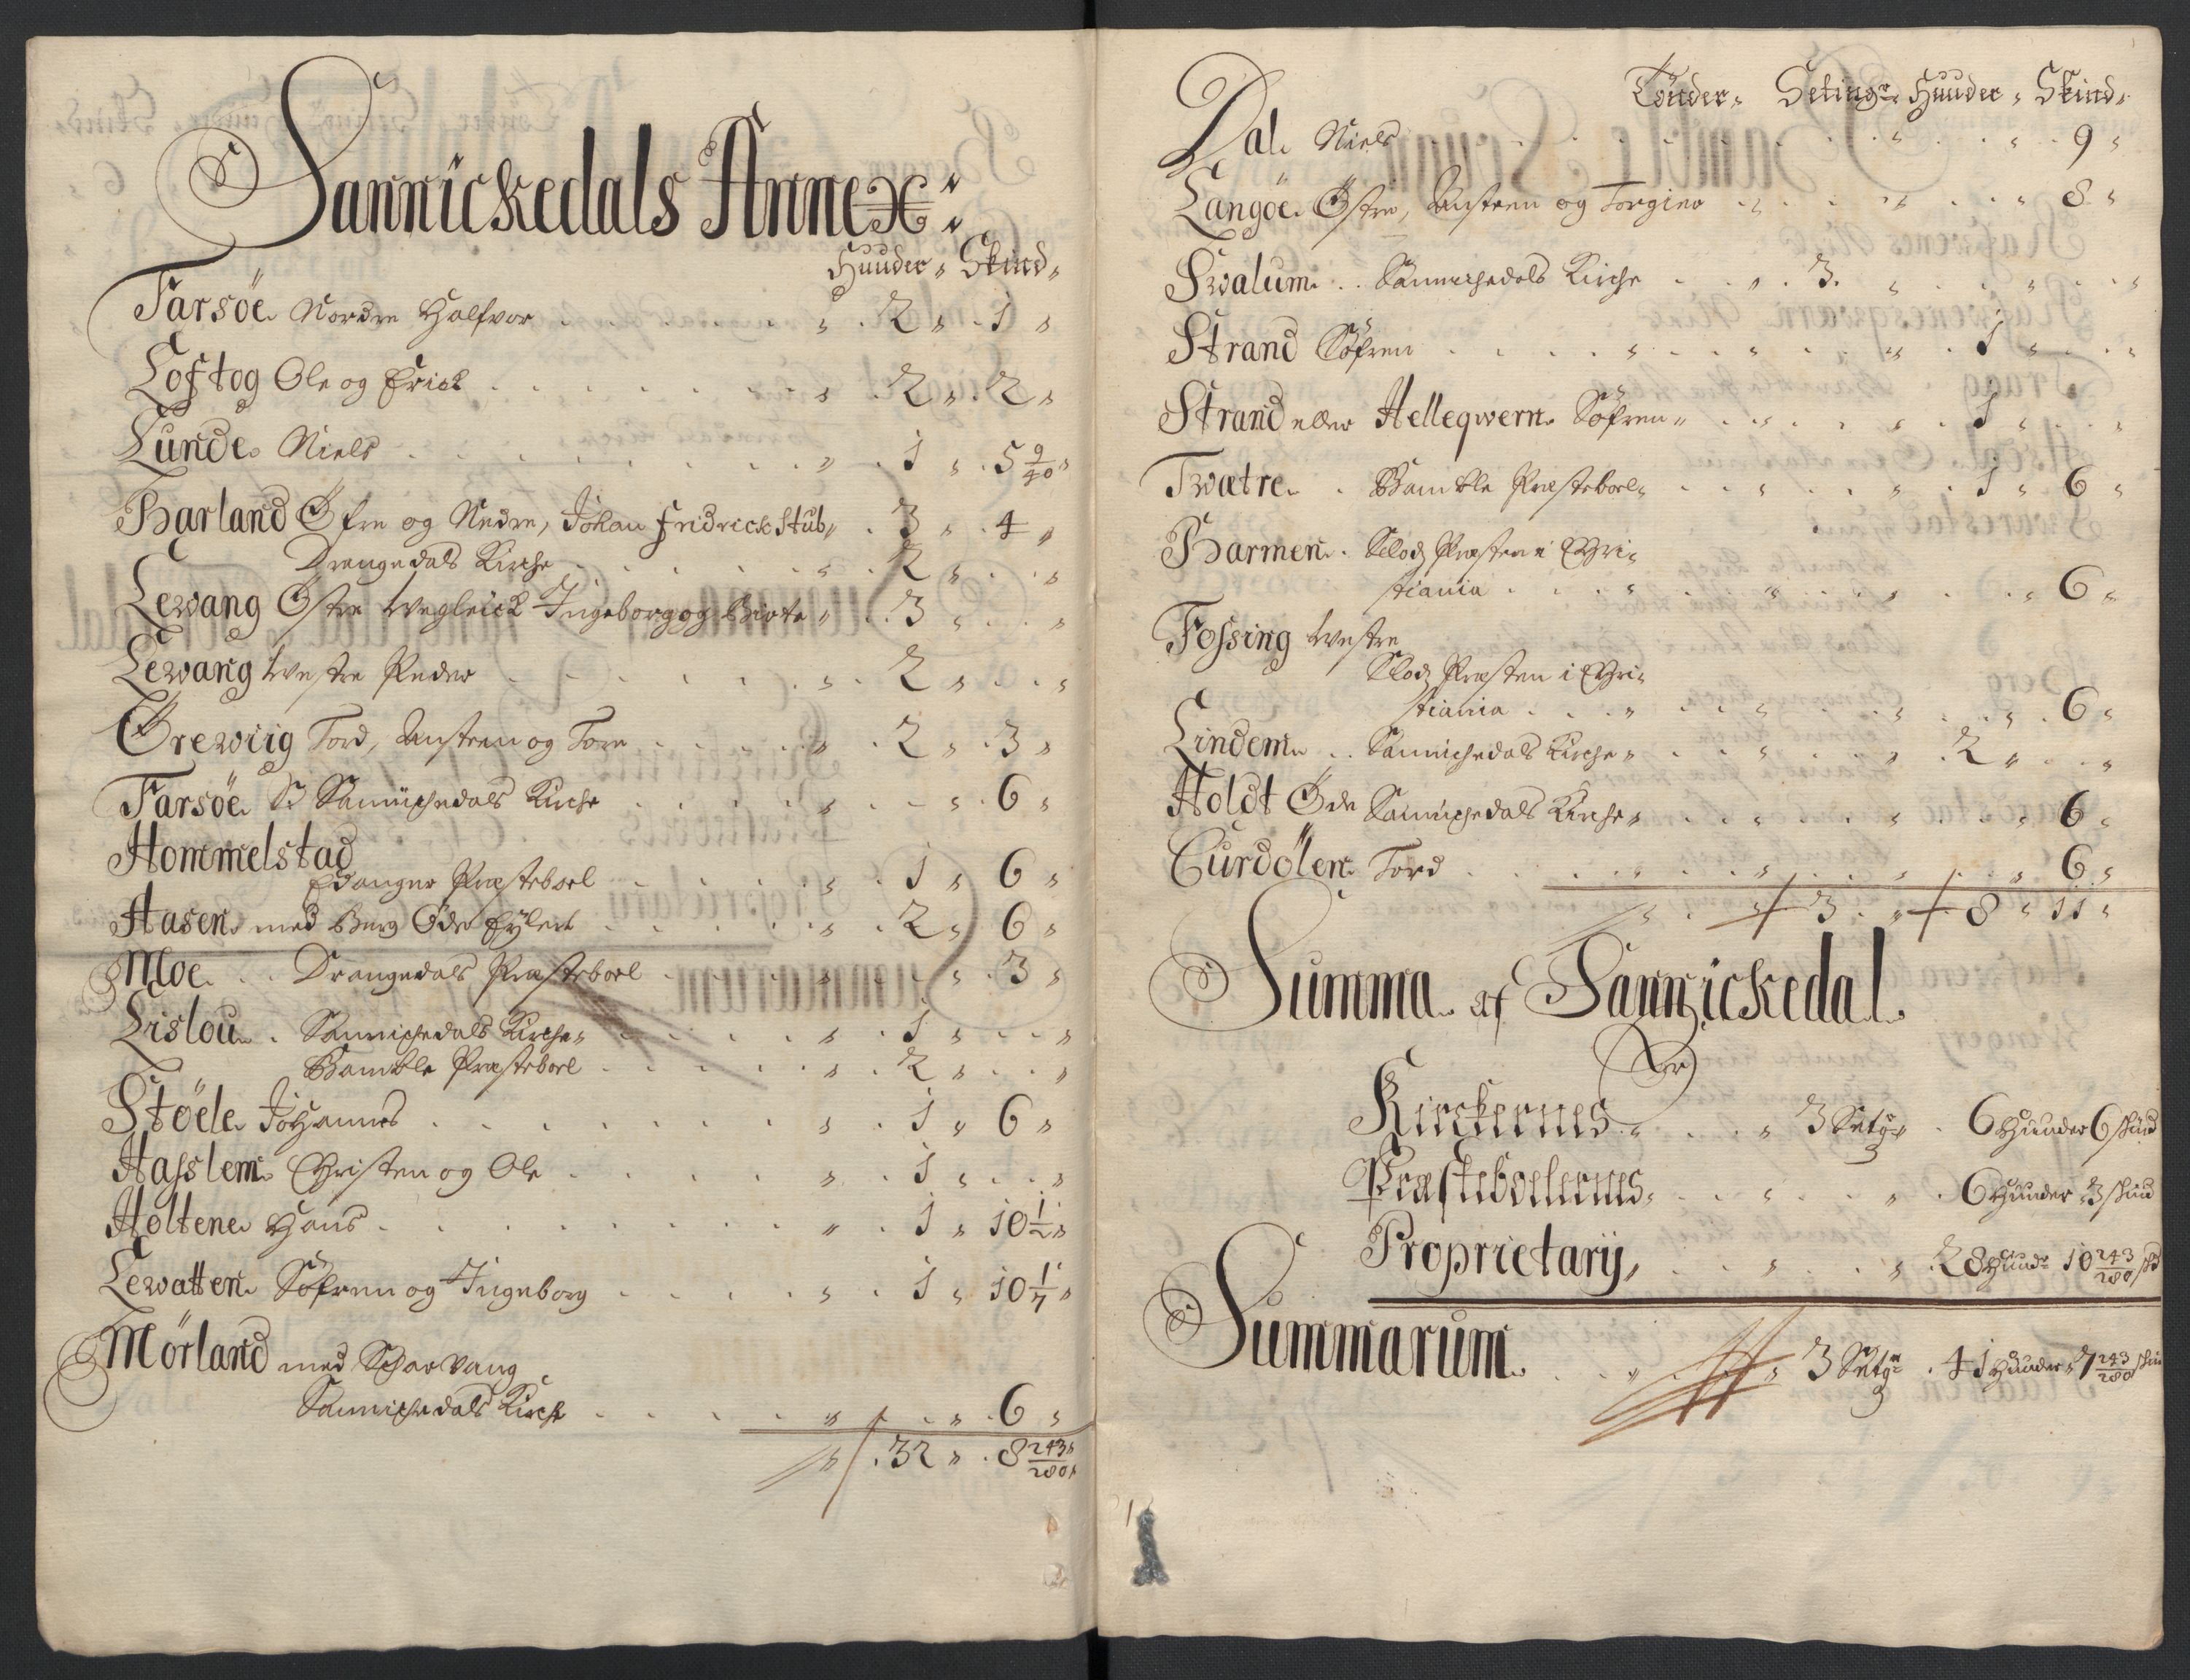 Sannickedals Annex:
Huuder, Skind,
Farsöe Nordre Halfvor 2 1
Loftog Ole og Erick 2 2
Lunde Niels 1 5 9/40
Barland Öfre og Nedre, Johan Fridrick Stub, 3 4
Drangedals Kirche 2
Lewang Östre Wegleick Ingeborg og Birte 3
Lewang Westre Peder 2
Örewiig Tord, Austen og Tore 2 3
Farsöe Sannichedals Kirche 6
Hommelstad
Edanger Præsteboel 1 6
Aasen med Berg Öde Eylert 2 6
Moe Drangedals Præsteboel 3
Lislou Sannichedals Kirche 1
Bamble Præsteboel 2
Stöele Johannes 1 6
Hasslem Christen og Ole 1
Holtene Hans 1 10 1/2
Lewatten Söfren og Ingeborg 1 10 1/7
Mörland med Scharvang
Sannichedals Kirche 6
32 8 243/280
Tönder, Setingr Huuder, Skind,
Dal Niels 9
Langöe Östre, Austen og Torgier 8
Swalum Sannichedals Kirche 3
Strand Söfren 1
Strand eller Helleqwern Söfren 1
Twætre Bamble Præsteboel 1 6
Barmen Slodz Præsten i Chri-
stiania 6
Fossing Westre
Slodz Præsten i Chri-
stiania 6
Lindem Sannichedals Kirche 2
Holdt Öde Sannichedals Kirche 6
Curdölen Tord 6
3 8 11
Summa af Sannickedal
Er
Kirckernes 3 Setgr 6 Huuder 6 skind
Præsteboelernes 6 Huuder 3 skind
Proprietarij, 28 Huudr 10 243/280 skd
Summarum 3 Setgr 41 Huuder 7 243/280 skin